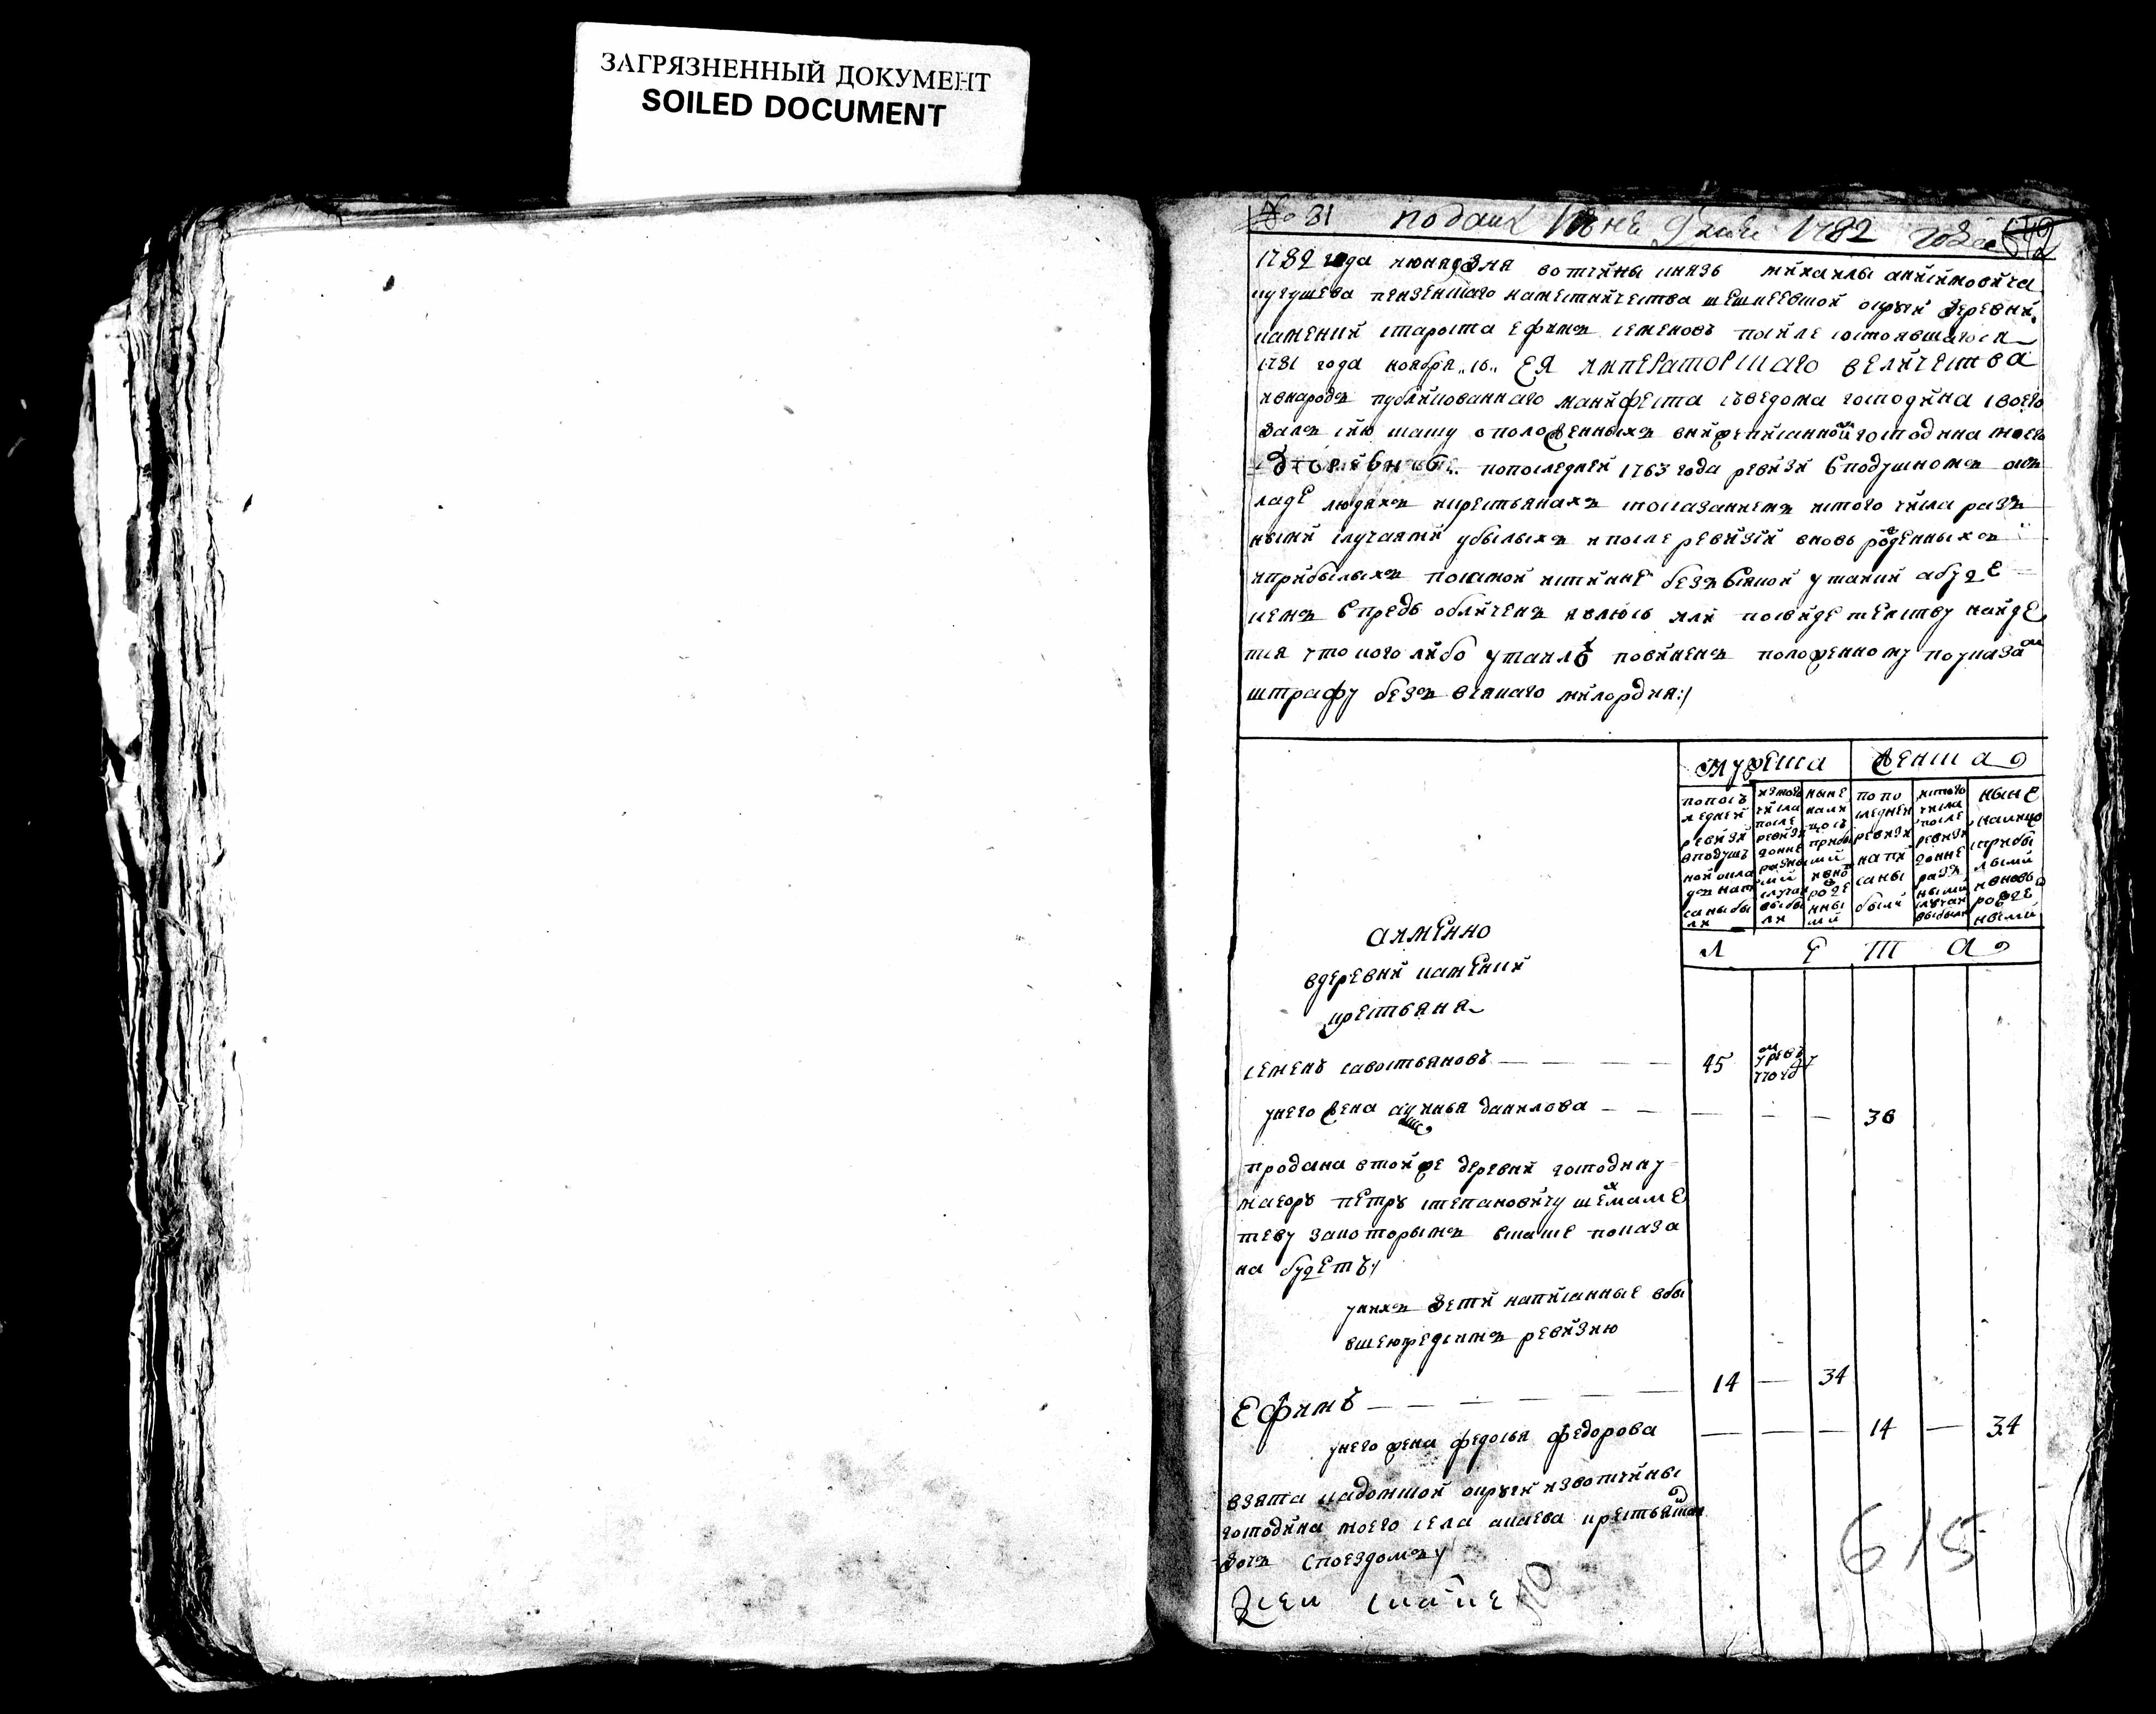 ЗАГРЯЗНЕННЫЙ ДОКУМЕНТ
SOILED DOCUMENT
№ 31 подана 1782 года
1782 года июня дня вотчины князь михаилы
кугушева пензенскаго наместничества шешкеевской округи деревни
каменки староста ефимъ семеновъ после состоявшагося
1781 года ноября „16„ ея императорскаго величества
и внародъ публикованнаго манифеста сведома господина своего
далъ сию скаску ополо͡женныхъ внижеписанной господина моего
деревне попоследней 1763 года ревизи вподушномъ окъ
ладе людяхъ икрестьянахъ споказаниемъ изтого числа разъ
ными случаями убылыхъ ипосле ревизии вновь рожденныхъ
иприбылыхъ посамой истинне безвсякой утайки абуде
кемъ впредь обличенъ явлюсь или посвидетелству найде
тся что кого либо утаилъ повиненъ положенному поуказам
штрафу безъ всякаго милосрдия:/
мужеска женска
попось
ледней
ревизи
вподуш
ной окла
де напи
саны бы
ли
изтого
числа
после
ревизи
донне
разны
ми
случаи
выбы
ли
ныне
нали
цось
прибы
лыми
ивно
рожде
нны
ми
попо
следней
ревизи
напи
саны
были
истого
числа
после
ревизи
донне
разъ
ными
случаи
выбыли
ныне
налицо
сприбы
лыми
ивновь
рожде
ными
л е т а
аименно
вдеревни каменки
крестьяня
семенъ савостьяновъ 45
унего жена данилова 36
продана втойже деревни господину
маеору петру степановичу
теву закоторымъ вскаске показа
на будетъ:/
унихъ дети написанные вбы
вшею предсимъ ревизию
Ефимъ 14 34
унего жена федосья федорова 14 34
взята кадомской округи извотчины
господина моего села крестьянская
дочь споездомъ:/
615